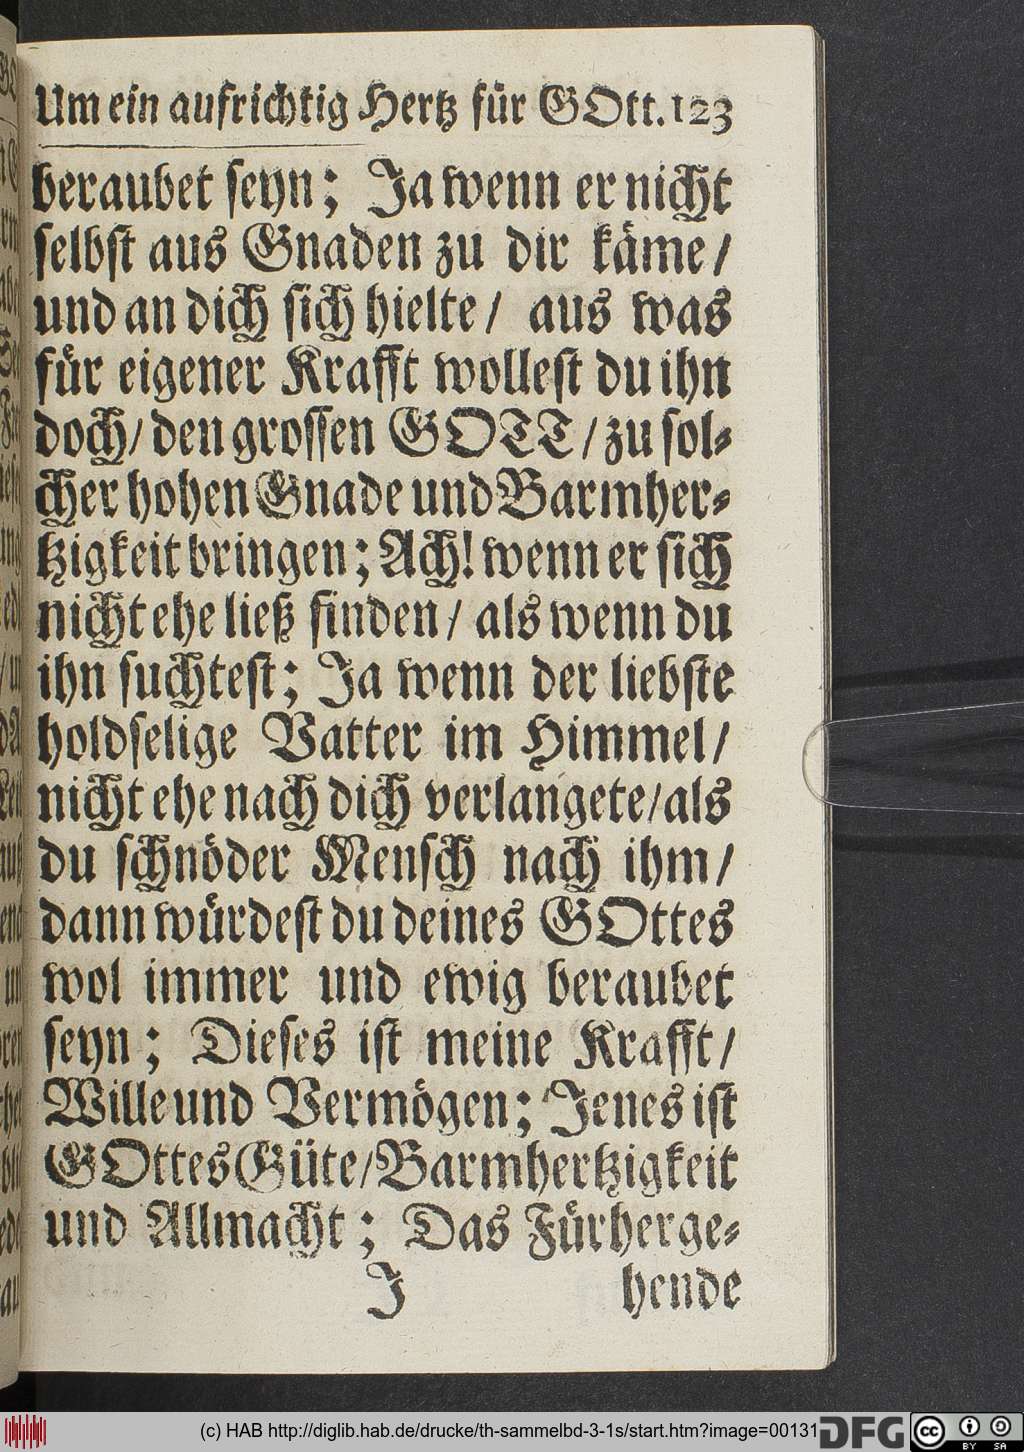 Um ein aufrichtig Hertz für GOtt. 123
beraubet seyn; Ja wenn er nicht
selbst aus Gnaden zu dir käme/
und an dich sich hielte/ aus was
für eigener Krafft wollest du ihn
doch/ den grossen GOTT/ zu sol-
cher hohen Gnade und Barmher-
tzigkeit bringen; Ach! wenn er sich
nicht ehe ließ finden/ als wenn du
ihn suchtest; Ja wenn der liebste
holdselige Vatter im Himmel/
nicht ehe nach dich verlangete/ als
du schnöder Mensch nach ihm/
dann würdest du deines GOttes
wol immer und ewig beraubet
seyn; Dieses ist meine Krafft/
Wille und Vermögen; Jenes ist
GOttes Güte/ Barmhertzigkeit
und Allmacht; Das Fürherge-
J hende
(c) HAB http://diglib.hab.de/drucke/th-sammelbd-3-1s/start.htm?image=00131
DFG
cc BY SA